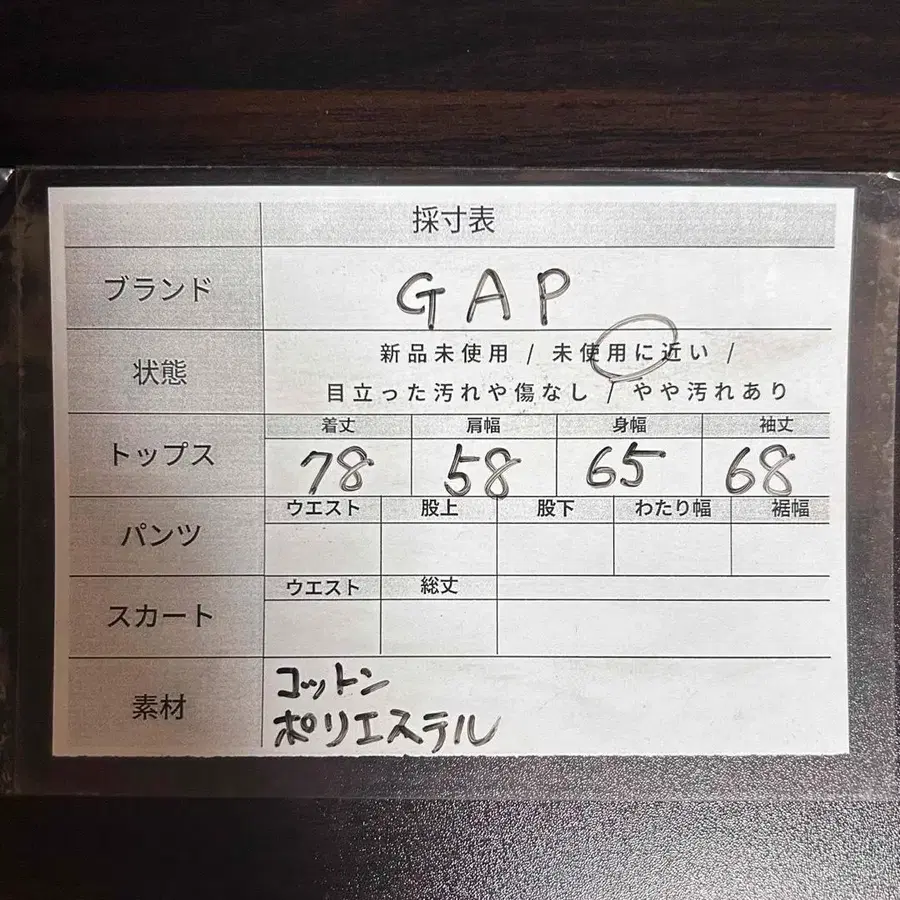 採寸表
ブランド GAP
状態 新品未使用 / 未使用に近い /
目立った汚れや傷なし / やや汚れあり
トップス 着丈 肩幅 身幅 袖丈
78 58 65 68
パンツ ウエスト 股上 股下 わたり幅 裾幅
スカート ウエスト 総丈
素材 コットン
ポリエステル